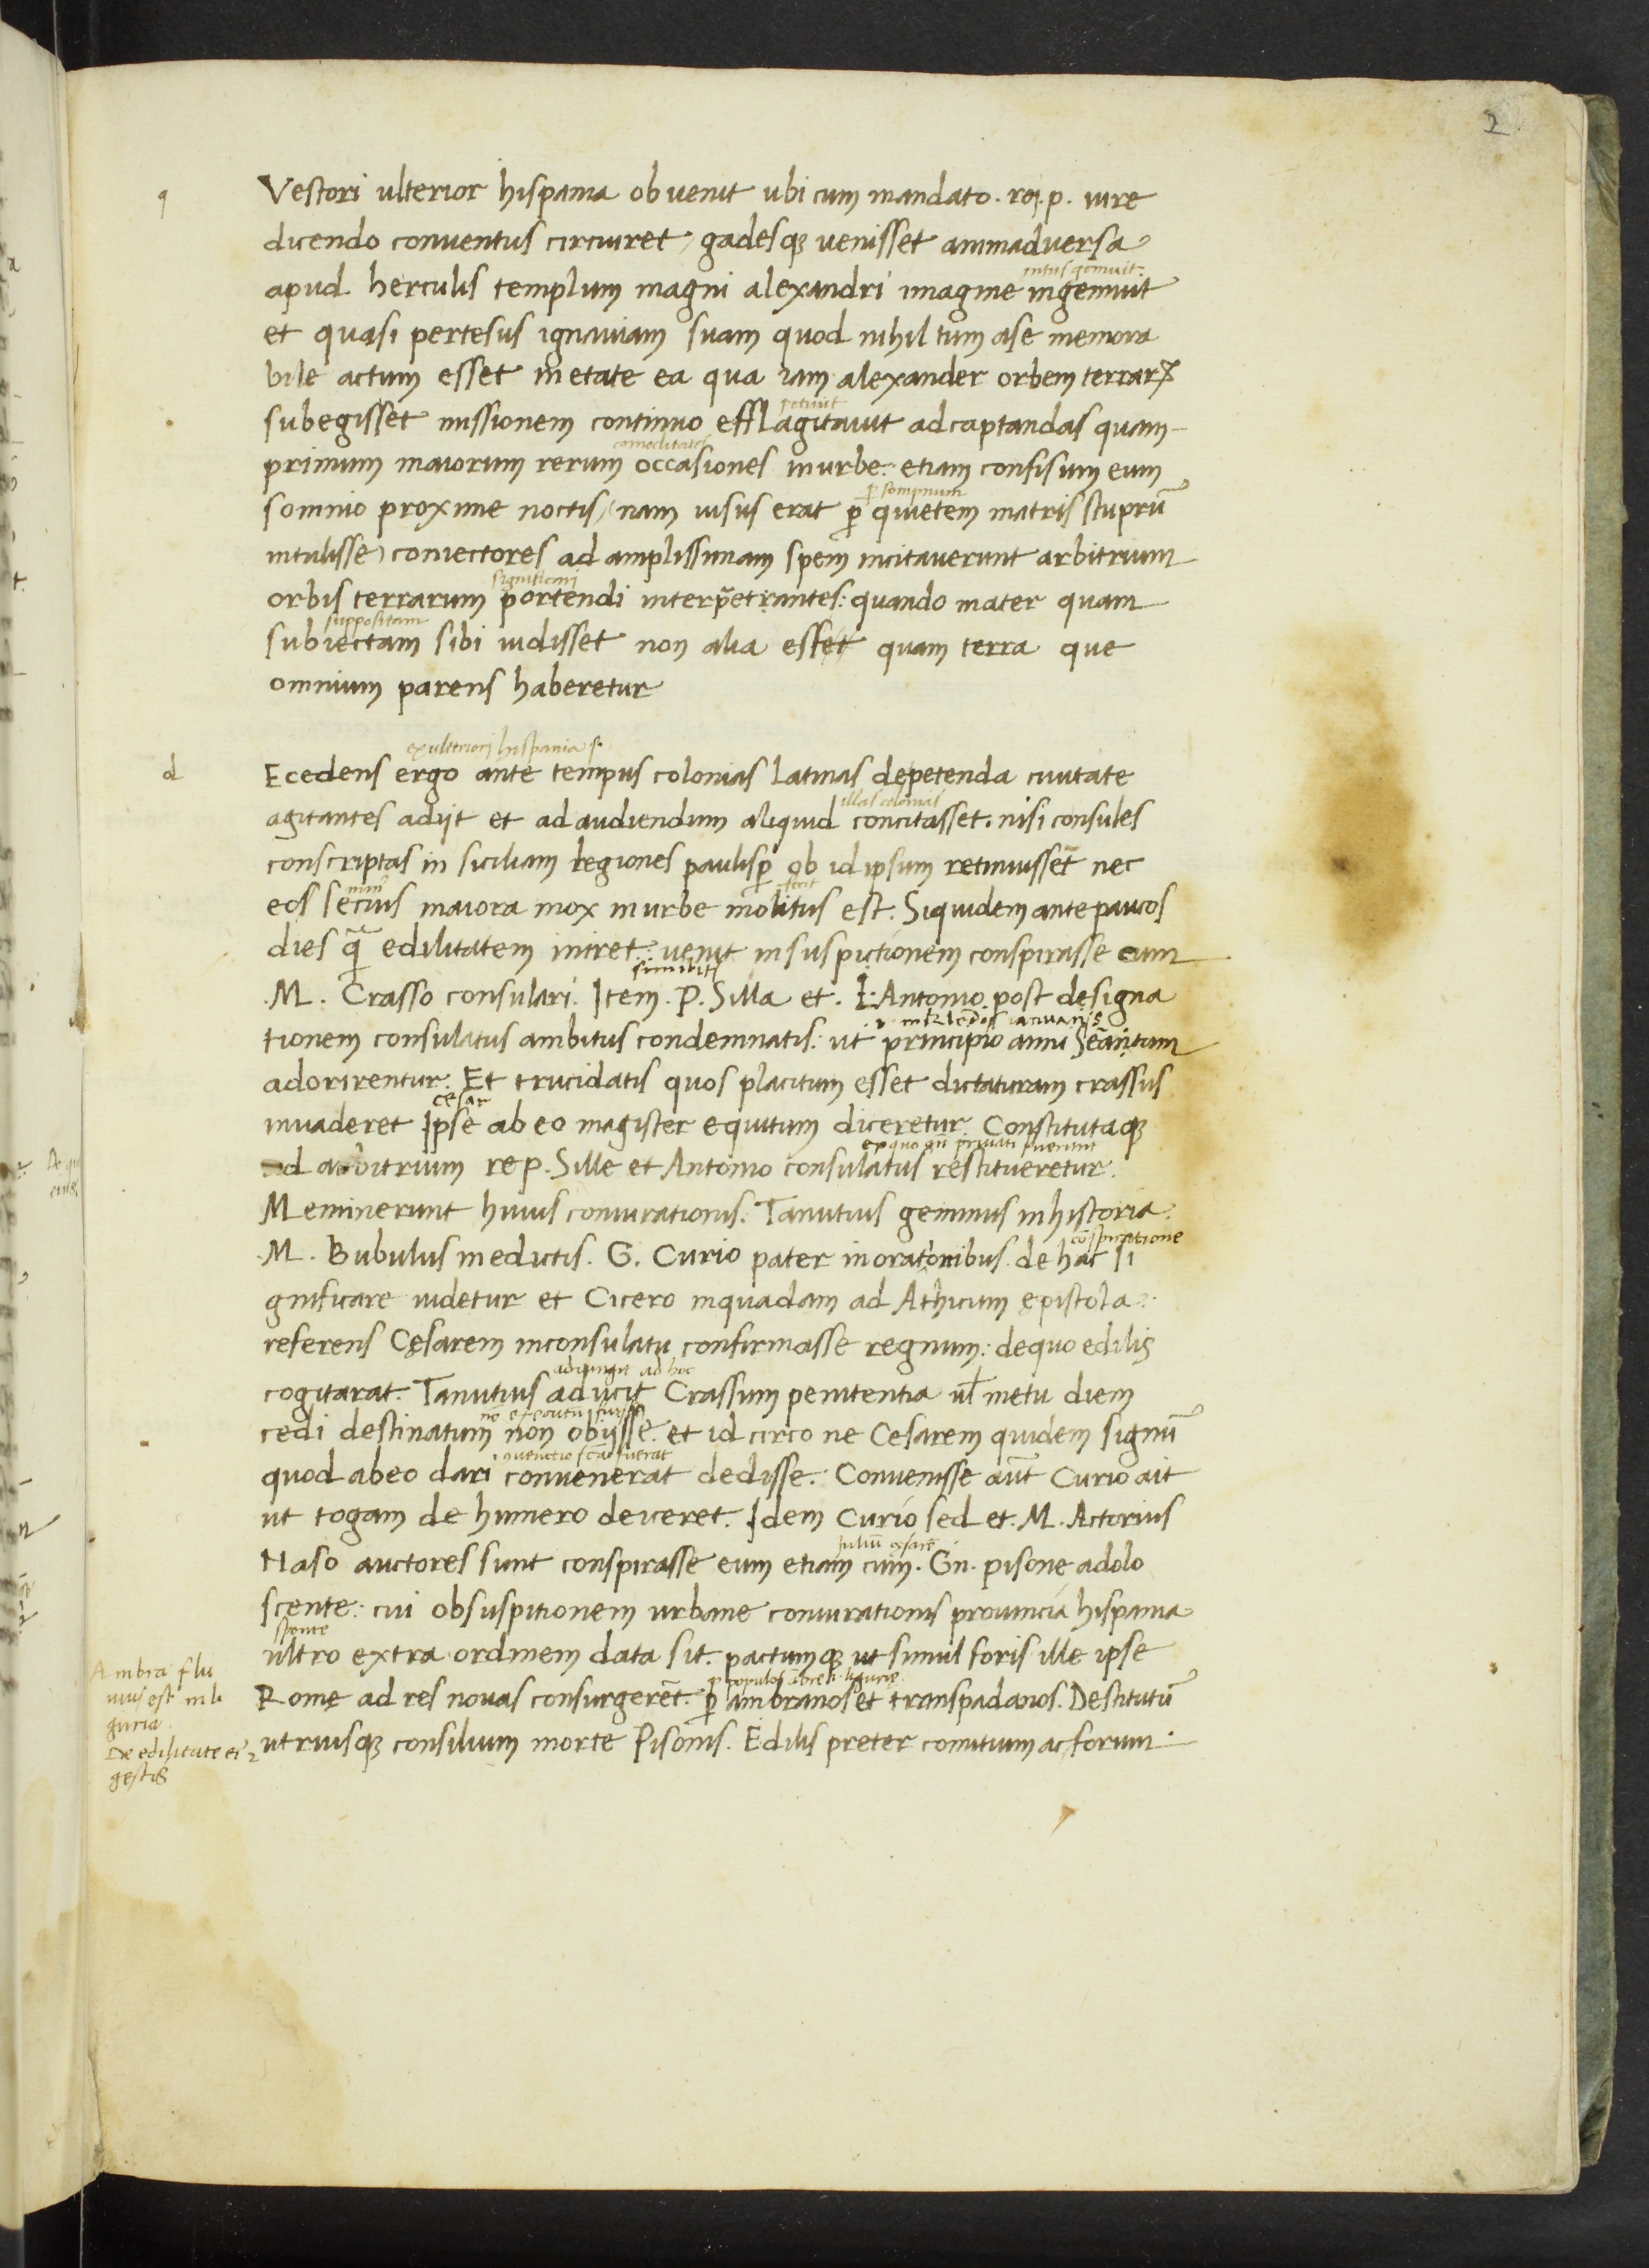 2
q
Vestori ulterior hispania obuenit ubi cum mandato. rei. p. iure
dicendo conuentus circuiret, gadesqʒ uenisset animaduersa
intus gemuit.
apud herculis templum magni alexandri imagine ingemuit
et quasi pertesus ignauiam suam quod nihil tum ase memora
bile actum esset inetate ea qua iam alexander orbem terrarꝝ
petiuit
subegisset missionem continuo efflagitauit adcaptandas quam-
comoditates
primum maiorum rerum occasiones inurbe: etiam confisum eum
ꝑ sompnum
somnio proxime noctis, (nam uisus erat ꝑ quietem matris stuprū
intulisse) coniectores ad amplissimam spem incitauerunt arbitrium
significari
orbis terrarum portendi interp̄etrantes: quando mater quam
suppositam
subiectam sibi uidisset non alia esset quam terra que
omnium parens haberetur
ex ulteriori hispania s.
d
Ecedens ergo ante tempus colonias latinas depetenda ciuitate
illas colonias
agitantes adijt et ad audiendum aliquid concitasset. nisi consules
conscriptas in siciliam legiones paulisꝑ ob id ipsum retinuissēt nec
min9 fecit
eos secius maiora mox inurbe molitus est. Siquidem ante paucos
dies q̄ edilitatem iniret: uenit insuspictionem conspirasse cum
similiter
.M. Crasso consulari. Item. P. Silla et. L. Antonio post designa
i. in klēdis ianuarijs
tionem consulatus ambitus condemnatis: ut principio anni Señatum
adorirentur. Et trucidatis quos placitum esset dictaturam crassus
cesar
inuaderet Ipse abeo magister equitum diceretur. Constitutaqʒ
ad arbitrium re p. Sille et Antonio consulatus restitueretur.
Meminerunt huius coniurationis. Tanutius geminus inhistoria.
cōspiratione
.M. Bubulus inedictis. G. Curio pater inoratoribus. de hac si
gnificare uidetur et Cicero inquadam ad Athicum epistola:
referens Cęsarem inconsulatu confirmasse regnum: dequo edilis
adiungit ad hoc
cogitarat. Tanutius adiicit Crassum penitentia ul̄ metu diem
cedi destinatum non obijsse. et id circo ne Cesarem quidem signū
quod abeo dari conuenerat dedisse. Conuenisse aūt Curio ait
ut togam de humero deiceret. Idem Curio sed et. M. Actorius
Naso auctores sunt conspirasse eum etiam cum. Gn. pisone adolo
scente: cui obsuspitionem urbane coniurationis prouincia hispania
sponte
ultro extra ordinem data sit. pactumqʒ ut simul foris ille ipse
Rome ad res nouas consurgerēt. ꝑ ambranos et transpadanos. Destitutū
utriusqʒ consilium morte Pisonis. Edilis preter comitium ac forum.
Ambra flu
uius est in li
guria.
De edilitate et
gestis